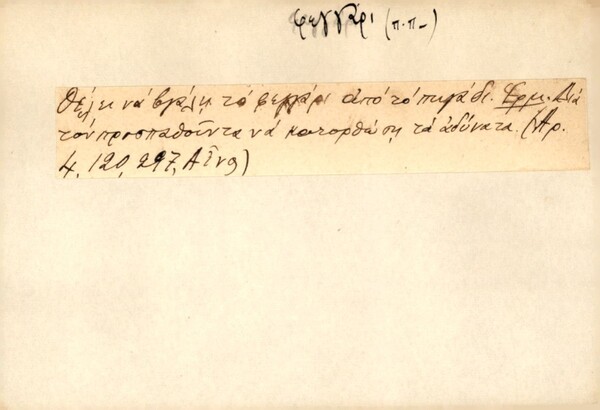 φεγγάρι (π.π-)
Θέλει νά βγάλῃ τό φεγγάρι ἀπό τό πηγάδι. Ἑρμ. Διά
τόν προσπαθοῦντα νά κατορθώσῃ τά ἀδύνατα. (Ἀρ.
4, 120, 297, Αἶνο)